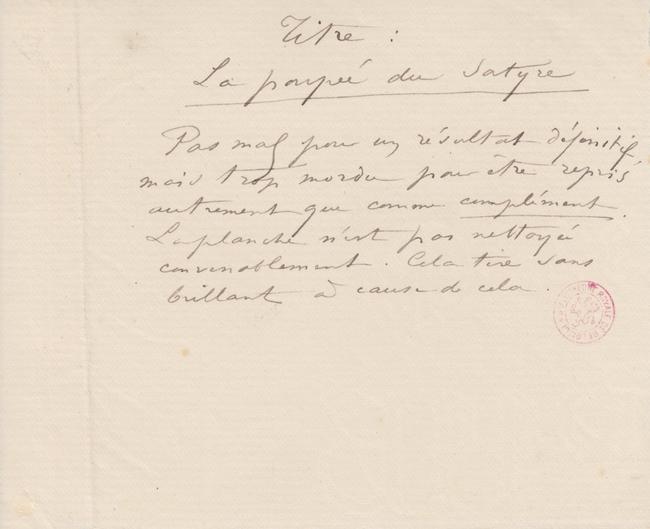 Titre :
La poupée du Satyre
Pas mal pour un résultat définitif
mais trop mordu pour être repris
autrement que comme complément.
La planche n'est pas nettoyée
convenablement. Cela tire sans
brillant à cause de cela.
ROYALE DE BELGIQUE